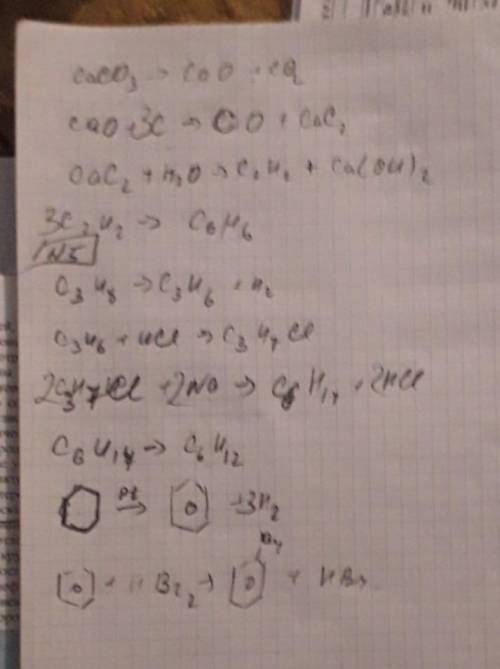 CaCO3 → CaO + CO2
CaO + 3C → CO + CaC2
CaC2 + H2O → C2H2 + Ca(OH)2
3C2H2 → C6H6
N5
C3H8 → C3H6 + H2
C3H6 + HCl → C3H7Cl
2C3H7Cl + 2Na → C6H14 + 2HCl
C6H14 → C6H12
Pt → + 3H2
Br
+ Br2 → + HBr